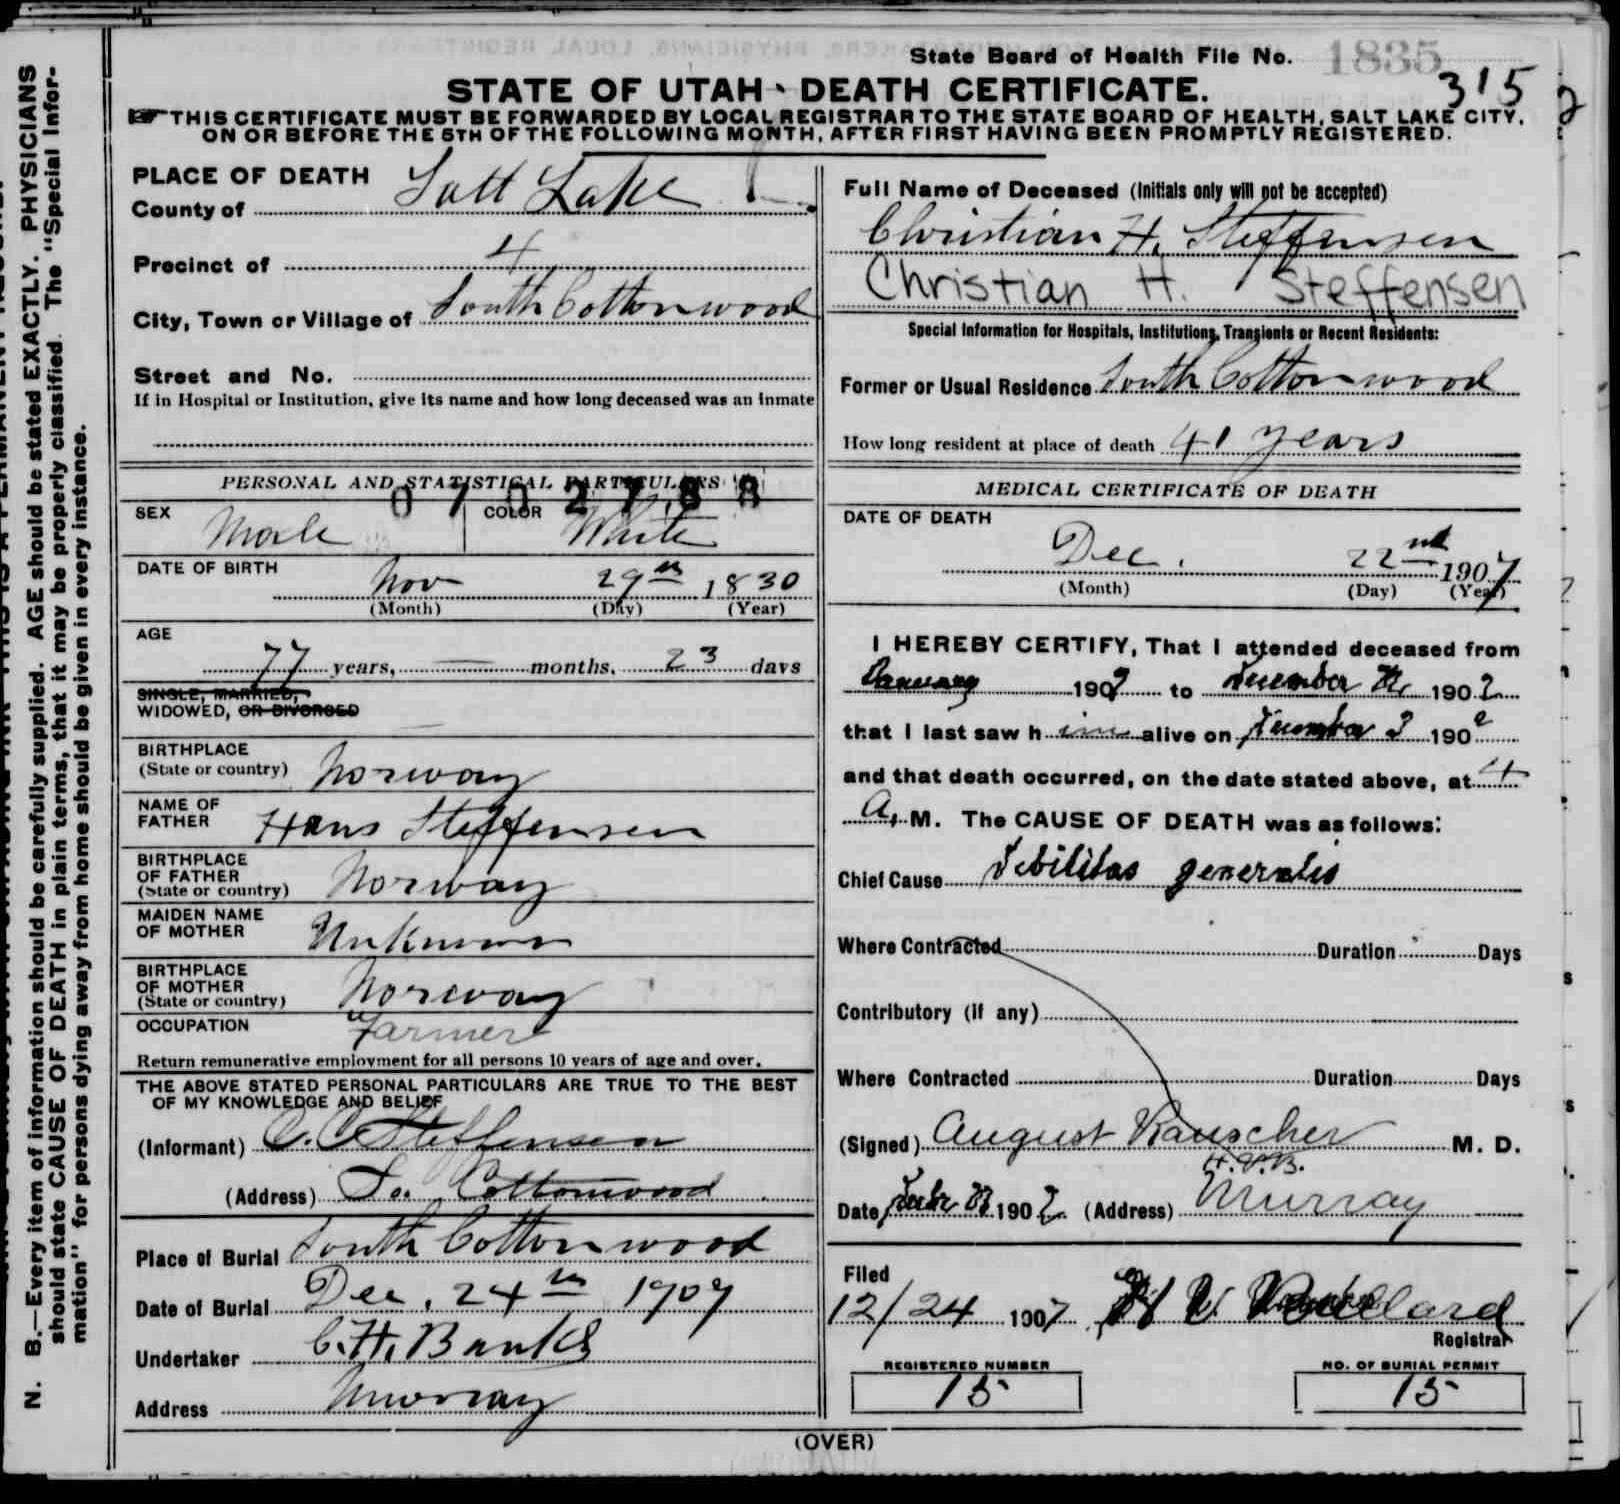 State Board of Health File No. 1835
315
STATE OF UTAH - DEATH CERTIFICATE.
THIS CERTIFICATE MUST BE FORWARDED BY LOCAL REGISTRAR TO THE STATE BOARD OF HEALTH, SALT LAKE CITY,
ON OR BEFORE THE 5TH OF THE FOLLOWING MONTH, AFTER FIRST HAVING BEEN PROMPTLY REGISTERED.
N. B.—Every item of information should be carefully supplied. AGE should be stated EXACTLY. PHYSICIANS
should state CAUSE OF DEATH in plain terms, that it may be properly classified. The "Special Infor-
mation" for persons dying away from home should be given in every instance.
PLACE OF DEATH
County of Salt Lake
Precinct of 4
City, Town or Village of South Cottonwood
Street and No.
If in Hospital or Institution, give its name and how long deceased was an inmate
PERSONAL AND STATISTICAL PARTICULARS
SEX Male COLOR White
DATE OF BIRTH
Nov 29th 1830
(Month) (Day) (Year)
AGE
77 years, — months, 23 days
SINGLE, MARRIED,
WIDOWED, OR DIVORCED
BIRTHPLACE
(State or country) Norway
NAME OF
FATHER Hans Steffensen
BIRTHPLACE
OF FATHER
(State or country) Norway
MAIDEN NAME
OF MOTHER Unknown
BIRTHPLACE
OF MOTHER
(State or country) Norway
OCCUPATION Farmer
Return remunerative employment for all persons 10 years of age and over.
THE ABOVE STATED PERSONAL PARTICULARS ARE TRUE TO THE BEST
OF MY KNOWLEDGE AND BELIEF
(Informant) C. C. Steffensen
(Address) So. Cottonwood
Place of Burial South Cottonwood
Date of Burial Dec. 24th 1907
Undertaker C. H. Banks
Address Murray
Full Name of Deceased (Initials only will not be accepted)
Christian H. Steffensen
Christian H. Steffensen
Special Information for Hospitals, Institutions, Transients or Recent Residents:
Former or Usual Residence South Cottonwood
How long resident at place of death 41 years
MEDICAL CERTIFICATE OF DEATH
DATE OF DEATH
Dec. 22nd 1907
(Month) (Day) (Year)
I HEREBY CERTIFY, That I attended deceased from
January 190 to December 22, 190
that I last saw him alive on December 3 190
and that death occurred, on the date stated above, at 4
A. M. The CAUSE OF DEATH was as follows:
Chief Cause Debilitas generalis
Where Contracted Duration Days
Contributory (If any)
Where Contracted Duration Days
(Signed) August Rauscher M. D.
H.V.B.
Date 190 (Address) Murray
Filed
12/24 1907
Registrar
REGISTERED NUMBER
15
NO. OF BURIAL PERMIT
15
(OVER)